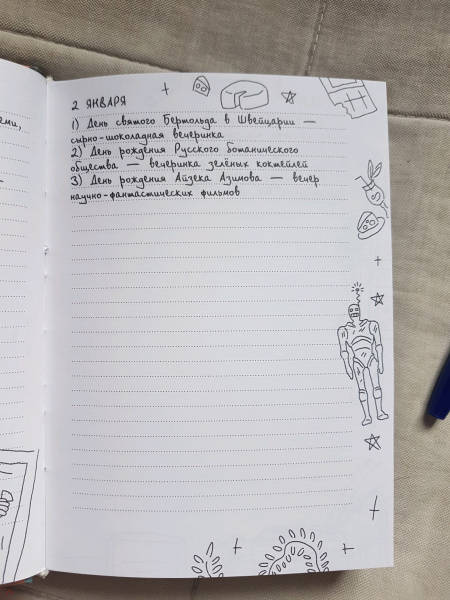 еми,
2 ЯНВАРЯ
1) День святого Бертольда в Швейцарии —
сырно-шоколадная вечеринка
2) День рождения Русского ботанического
общества — вечеринка зелёных коктейлей
3) День рождения Айзека Азимова — вечер
научно-фантастических фильмов